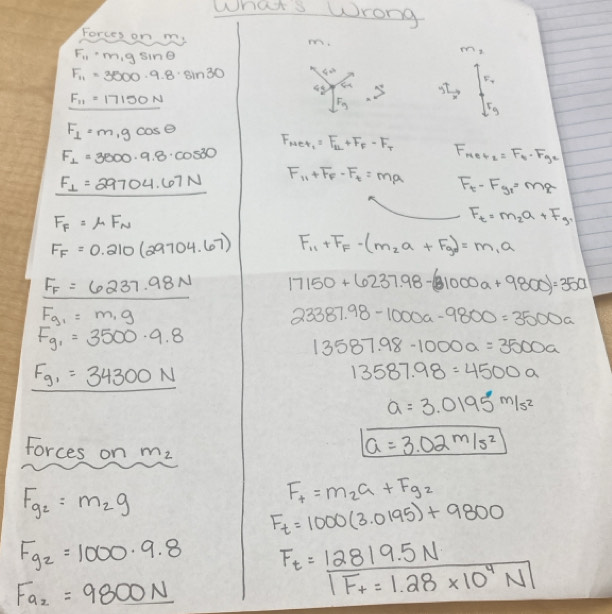 What's Wrong
Forces on m₁
F∥ = m₁g sinθ
F∥ = 3500 · 9.8 · sin30
F∥ = 17150 N
F⊥ = m₁g cosθ
F⊥ = 3500 · 9.8 · cos30
F⊥ = 29704.67 N
F_F = μ F_N
F_F = 0.210 (29704.67)
F_F = 6237.98 N
F_g₁ = m₁g
F_g₁ = 3500 · 9.8
F_g₁ = 34300 N
Forces on m₂
F_g₂ = m₂g
F_g₂ = 1000 · 9.8
F_g₂ = 9800 N
m₁
F_g
m₂
F_t
F_g
F_Net₁ = F∥ + F_F - F_T
F∥ + F_F - F_t = ma
F_Net₂ = F_t - F_g₂
F_t - F_g₁ = ma
F_t = m₂a + F_g₁
F∥ + F_F - (m₂a + F_g₂) = m₁a
17150 + 6237.98 - (1000a + 9800) = 350a
23387.98 - 1000a - 9800 = 3500a
13587.98 - 1000a = 3500a
13587.98 = 4500a
a = 3.0195 m/s²
a = 3.02 m/s²
F_t = m₂a + F_g₂
F_t = 1000(3.0195) + 9800
F_t = 12819.5 N
F_t = 1.28 × 10⁴ N